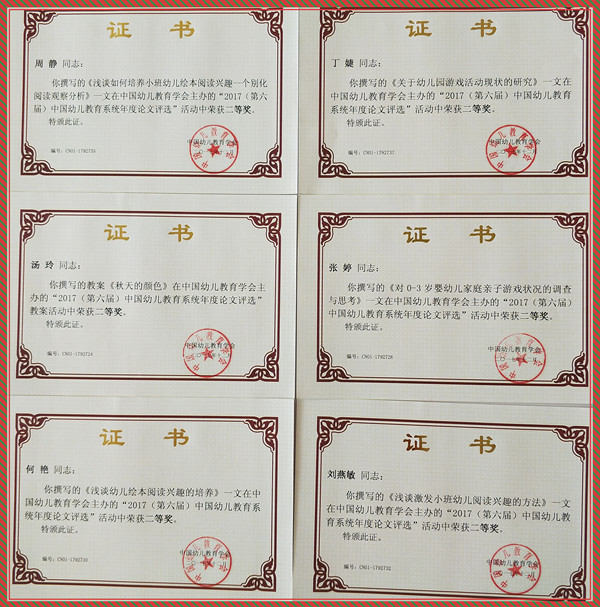 证 书
周 静 同志：
你撰写的《浅谈如何培养小班幼儿绘本阅读兴趣—个别化
阅读观察分析》一文在中国幼儿教育学会主办的“2017（第六
届）中国幼儿教育系统年度论文评选”活动中荣获二等奖。
特颁此证。
中国幼儿教育学会
编号：CN01-1792735
证 书
丁 婕 同志：
你撰写的《关于幼儿园游戏活动现状的研究》一文在
中国幼儿教育学会主办的“2017（第六届）中国幼儿教育
系统年度论文评选”活动中荣获二等奖。
特颁此证。
中国幼儿教育学会
编号：CN01-1792737
证 书
汤 玲 同志：
你撰写的教案《秋天的颜色》在中国幼儿教育学会主
办的“2017（第六届）中国幼儿教育系统年度论文评选”
教案活动中荣获二等奖。
特颁此证。
中国幼儿教育学会
编号：CN01-1792724
证 书
张 婷 同志：
你撰写的《对 0-3 岁婴幼儿家庭亲子游戏状况的调查
与思考》一文在中国幼儿教育学会主办的“2017（第六届）
中国幼儿教育系统年度论文评选”活动中荣获二等奖。
特颁此证。
中国幼儿教育学会
编号：CN01-1792728
证 书
何 艳 同志：
你撰写的《浅谈幼儿绘本阅读兴趣的培养》一文在中
国幼儿教育学会主办的“2017（第六届）中国幼儿教育系
统年度论文评选”活动中荣获二等奖。
特颁此证。
中国幼儿教育学会
编号：CN01-1792730
证 书
刘燕敏 同志：
你撰写的《浅谈激发小班幼儿阅读兴趣的方法》一文
在中国幼儿教育学会主办的“2017（第六届）中国幼儿教
育系统年度论文评选”活动中荣获二等奖。
特颁此证。
中国幼儿教育学会
编号：CN01-1792732